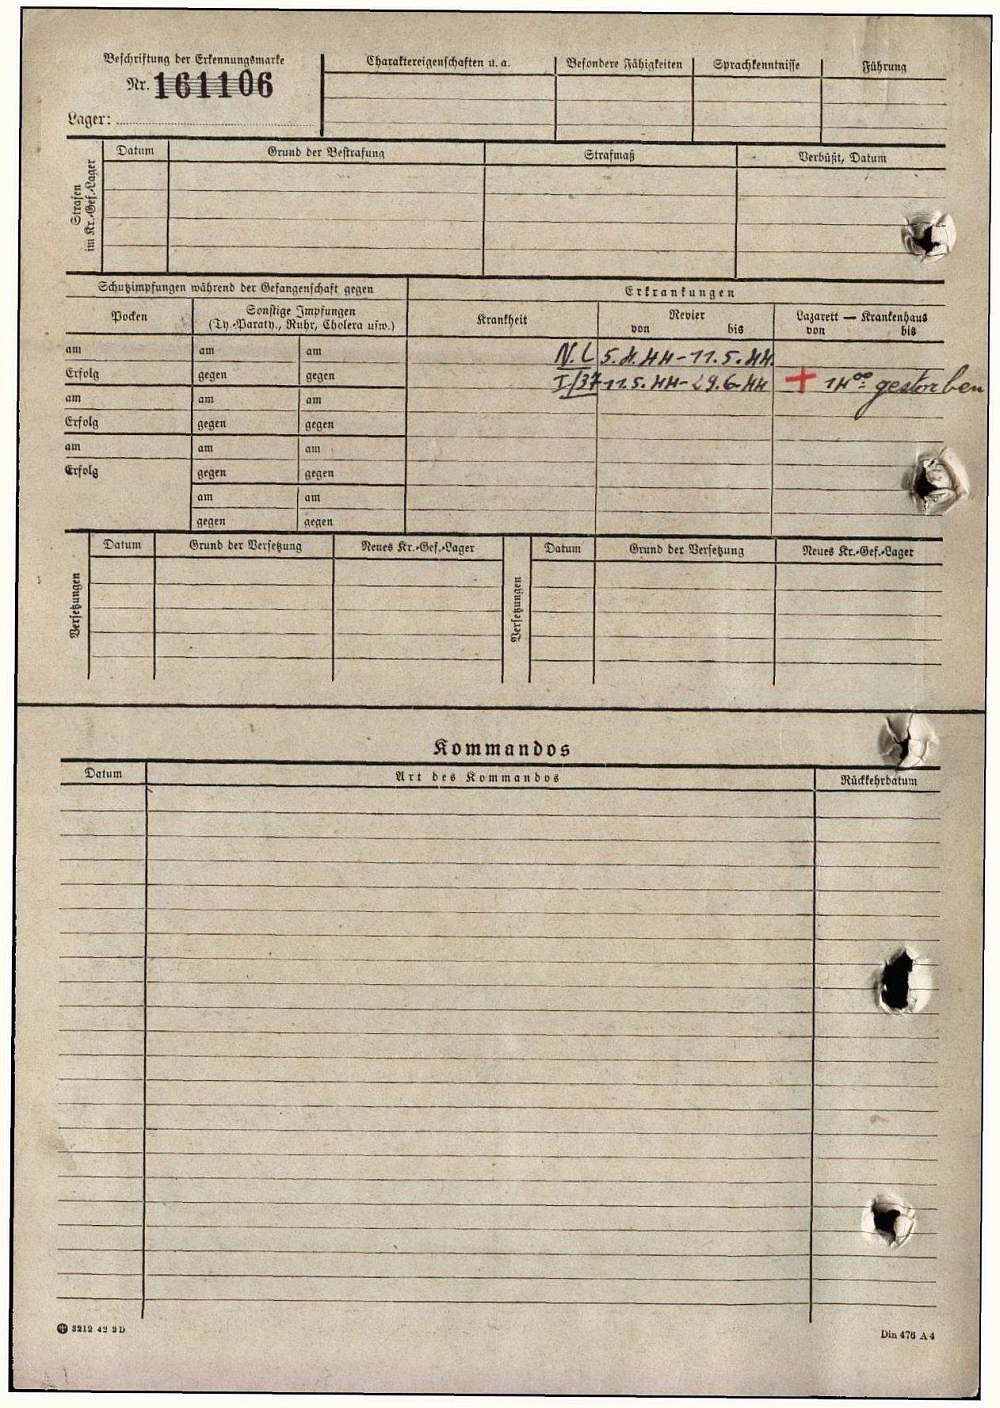 Beschriftung der Erkennungsmarke
Nr. 161106
Lager:
Charaktereigenschaften u. a.
Besondere Fähigkeiten
Sprachkenntnisse
Führung
Strafen
im Kr.-Gef.-Lager
Datum
Grund der Bestrafung
Strafmaß
Verbüßt, Datum
Schutzimpfungen während der Gefangenschaft gegen
Erkrankungen
Pocken
Sonstige Impfungen
(Ty.-Paraty., Ruhr, Cholera usw.)
Krankheit
Revier
von bis
Lazarett — Krankenhaus
von bis
am am am
N.L 5.4.44-11.5.44.
Erfolg gegen gegen
I/37 11.5.44-29.6.44 + 14°° gestorben
am am am
Erfolg gegen gegen
am am am
Erfolg gegen gegen
am am
gegen gegen
Versetzungen
Datum
Grund der Versetzung
Neues Kr.-Gef.-Lager
Versetzungen
Datum
Grund der Versetzung
Neues Kr.-Gef.-Lager
Kommandos
Datum
Art des Kommandos
Rückkehrdatum
3212 42 2D
Din 476 A 4